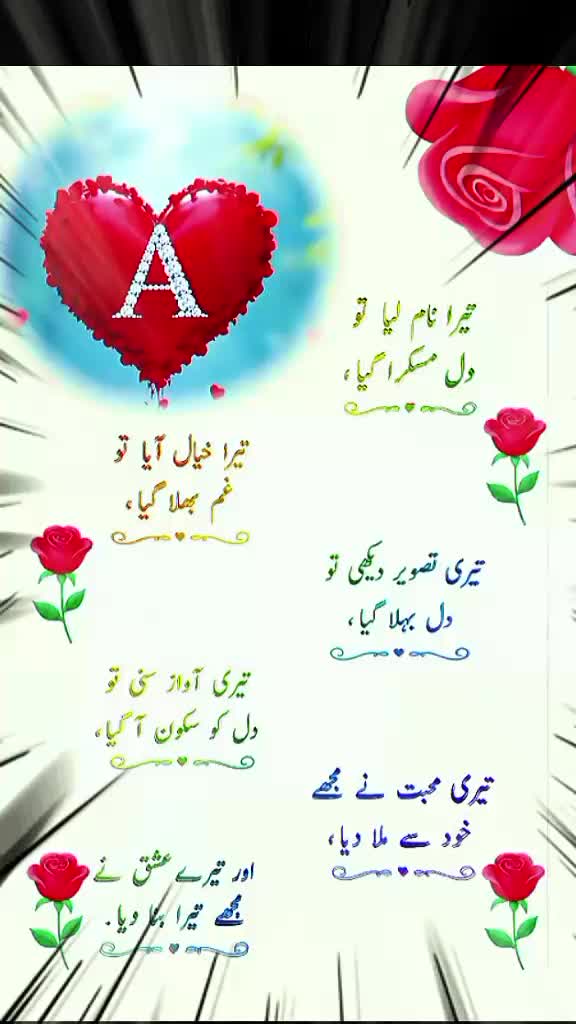 A
تیرا نام لیا تو
دل مسکرا گیا،
تیرا خیال آیا تو
غم بھلا گیا،
تیری تصویر دیکھی تو
دل بہلا گیا،
تیری آواز سنی تو
دل کو سکون آ گیا،
تیری محبت نے مجھے
خود سے ملا دیا،
اور تیرے عشق نے
مجھے تیرا بنا دیا۔